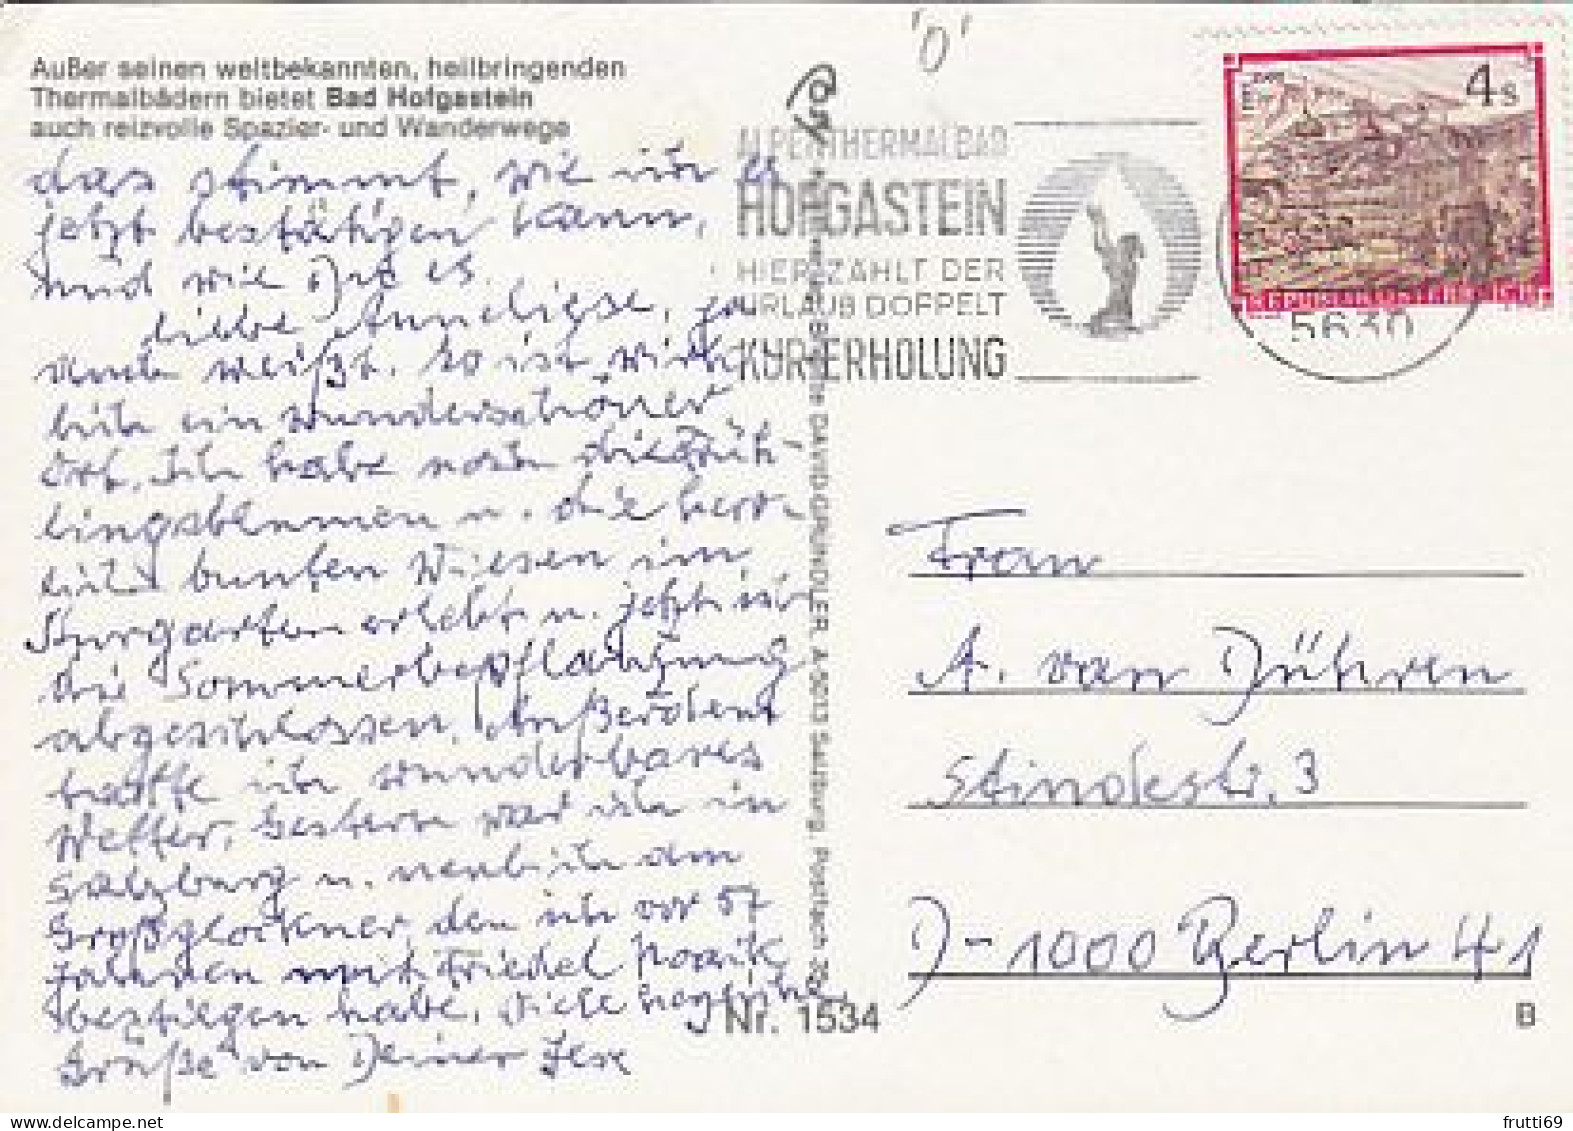 Außer seinen weltbekannten, heilbringenden
Thermalbädern bietet Bad Hofgastein
auch reizvolle Spazier- und Wanderwege
das stimmt, wie ich es
jetzt bestätigen kann,
und wie Du es
liebe Anneliese, ja
auch weißt. So ist wirk-
lich ein wunderschöner
Ort. Ich habe noch die Früh-
lingsblumen u. die herr-
lich bunten Wiesen im
Kurgarten erlebt u. jetzt ist
die Sommerbepflanzung
abgeschlossen. Außerdem
hatte ich wunderbares
Wetter. Gestern war ich in
Salzburg u. neulich am
Großglockner, den ich vor 57
Jahren mit Friedel
bestiegen habe. Viele
Grüße von Deiner
'0'
ALPENTHERMALBAD
HOFGASTEIN
HIER ZÄHLT DER
URLAUB DOPPELT
KUR-ERHOLUNG
4 S
REPUBLIK ÖSTERREICH
5630
DAVID GRÜNDLER, A-5013 Salzburg, Postfach
Frau
A. van Dühren
Stindestr. 3
D-1000 Berlin 41
Nr. 1534
B
frutti69